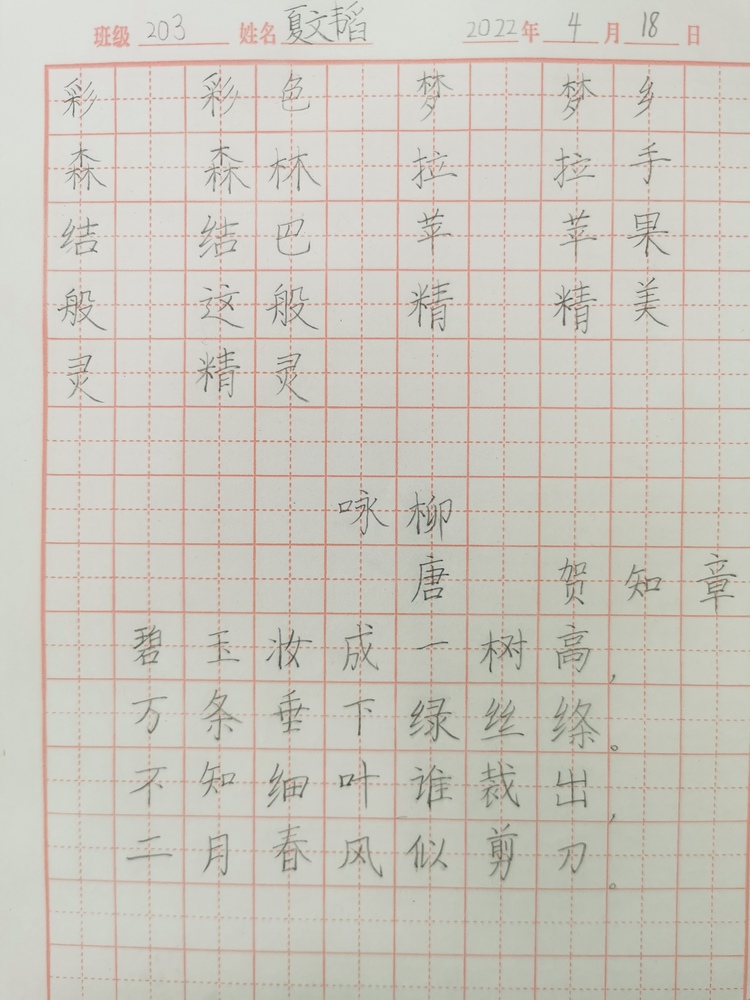 班级 203 姓名 夏文韬 2022年 4月 18日
彩 彩色 梦 梦乡
森 森林 拉 拉手
结 结巴 苹 苹果
般 这般 精 精美
灵 精灵
咏柳
唐 贺知章
碧玉妆成一树高,
万条垂下绿丝绦。
不知细叶谁裁出,
二月春风似剪刀。